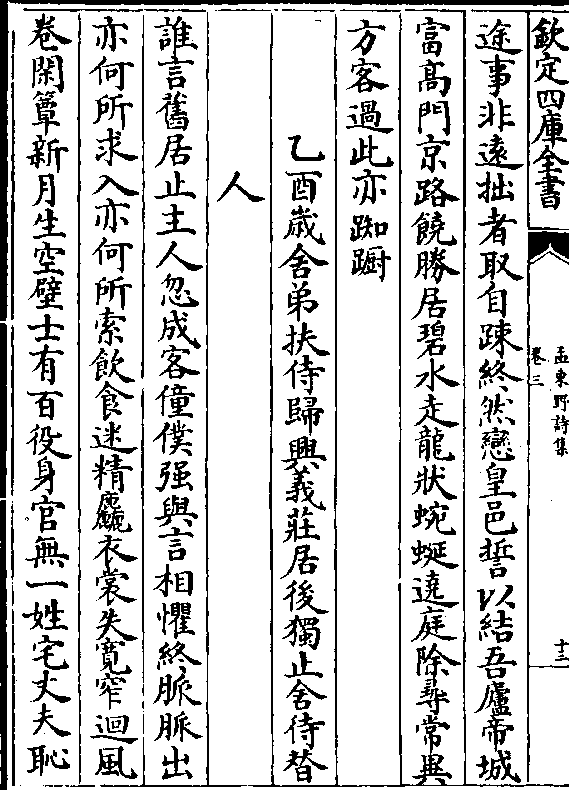 欽定四庫全書
孟東野詩集
卷三
十三
途事非遠拙者取自踈終然戀皇邑誓以結吾廬帝城
富髙門京路饒勝居碧水走龍狀蜿蜒遶庭除尋常異
方客過此亦踟蹰
乙酉歲舍弟扶侍歸興義莊居後獨止舍待替
人
誰言舊居止主人忽成客僮僕强與言相懼終脈脈出
亦何所求入亦何所索飲食迷精麤衣裳失寛窄迴風
卷閑簟新月生空壁士有百役身官無一姓宅丈夫恥